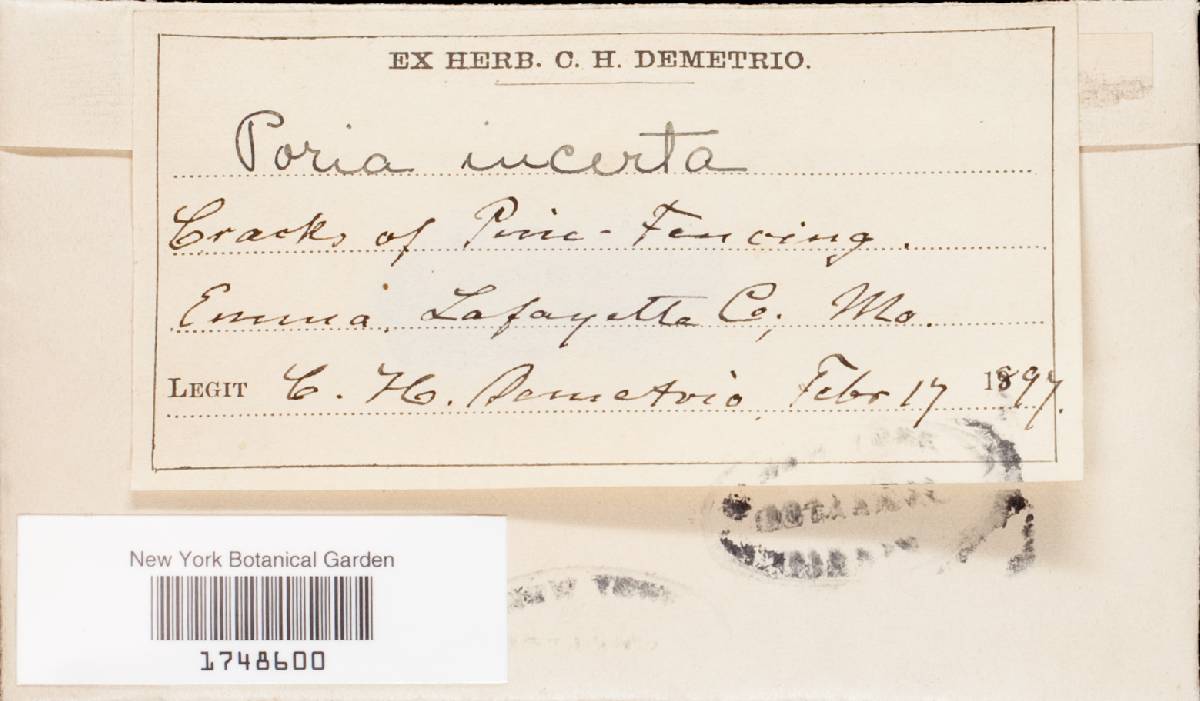 EX HERB. C. H. DEMETRIO.
Poria incerta
Cracks of Pine-Fencing.
Emma, Lafayette Co., Mo.
LEGIT C. H. Demetrio, Febr 17 1897.
New York Botanical Garden
1748600
NEW YORK